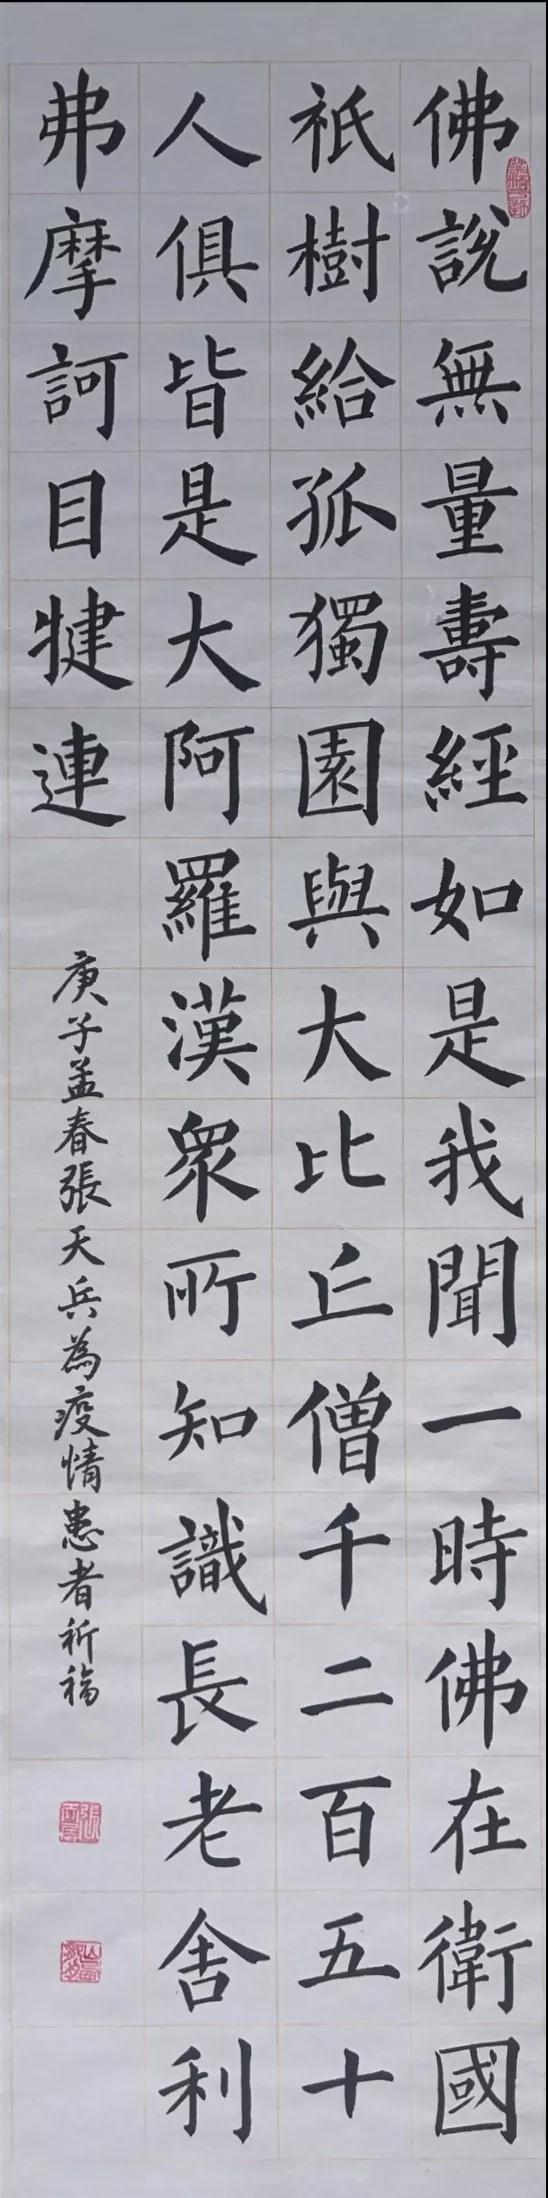 佛說無量壽經如是我聞一時佛在衛國
祇樹給孤獨園與大比丘僧千二百五十
人俱皆是大阿羅漢眾所知識長老舍利
弗摩訶目犍連
庚子孟春張天兵為疫情患者祈福